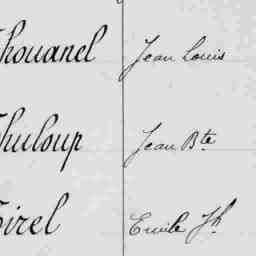 houanel Jean Louis
huloup Jean Bte
irel Emile Jh